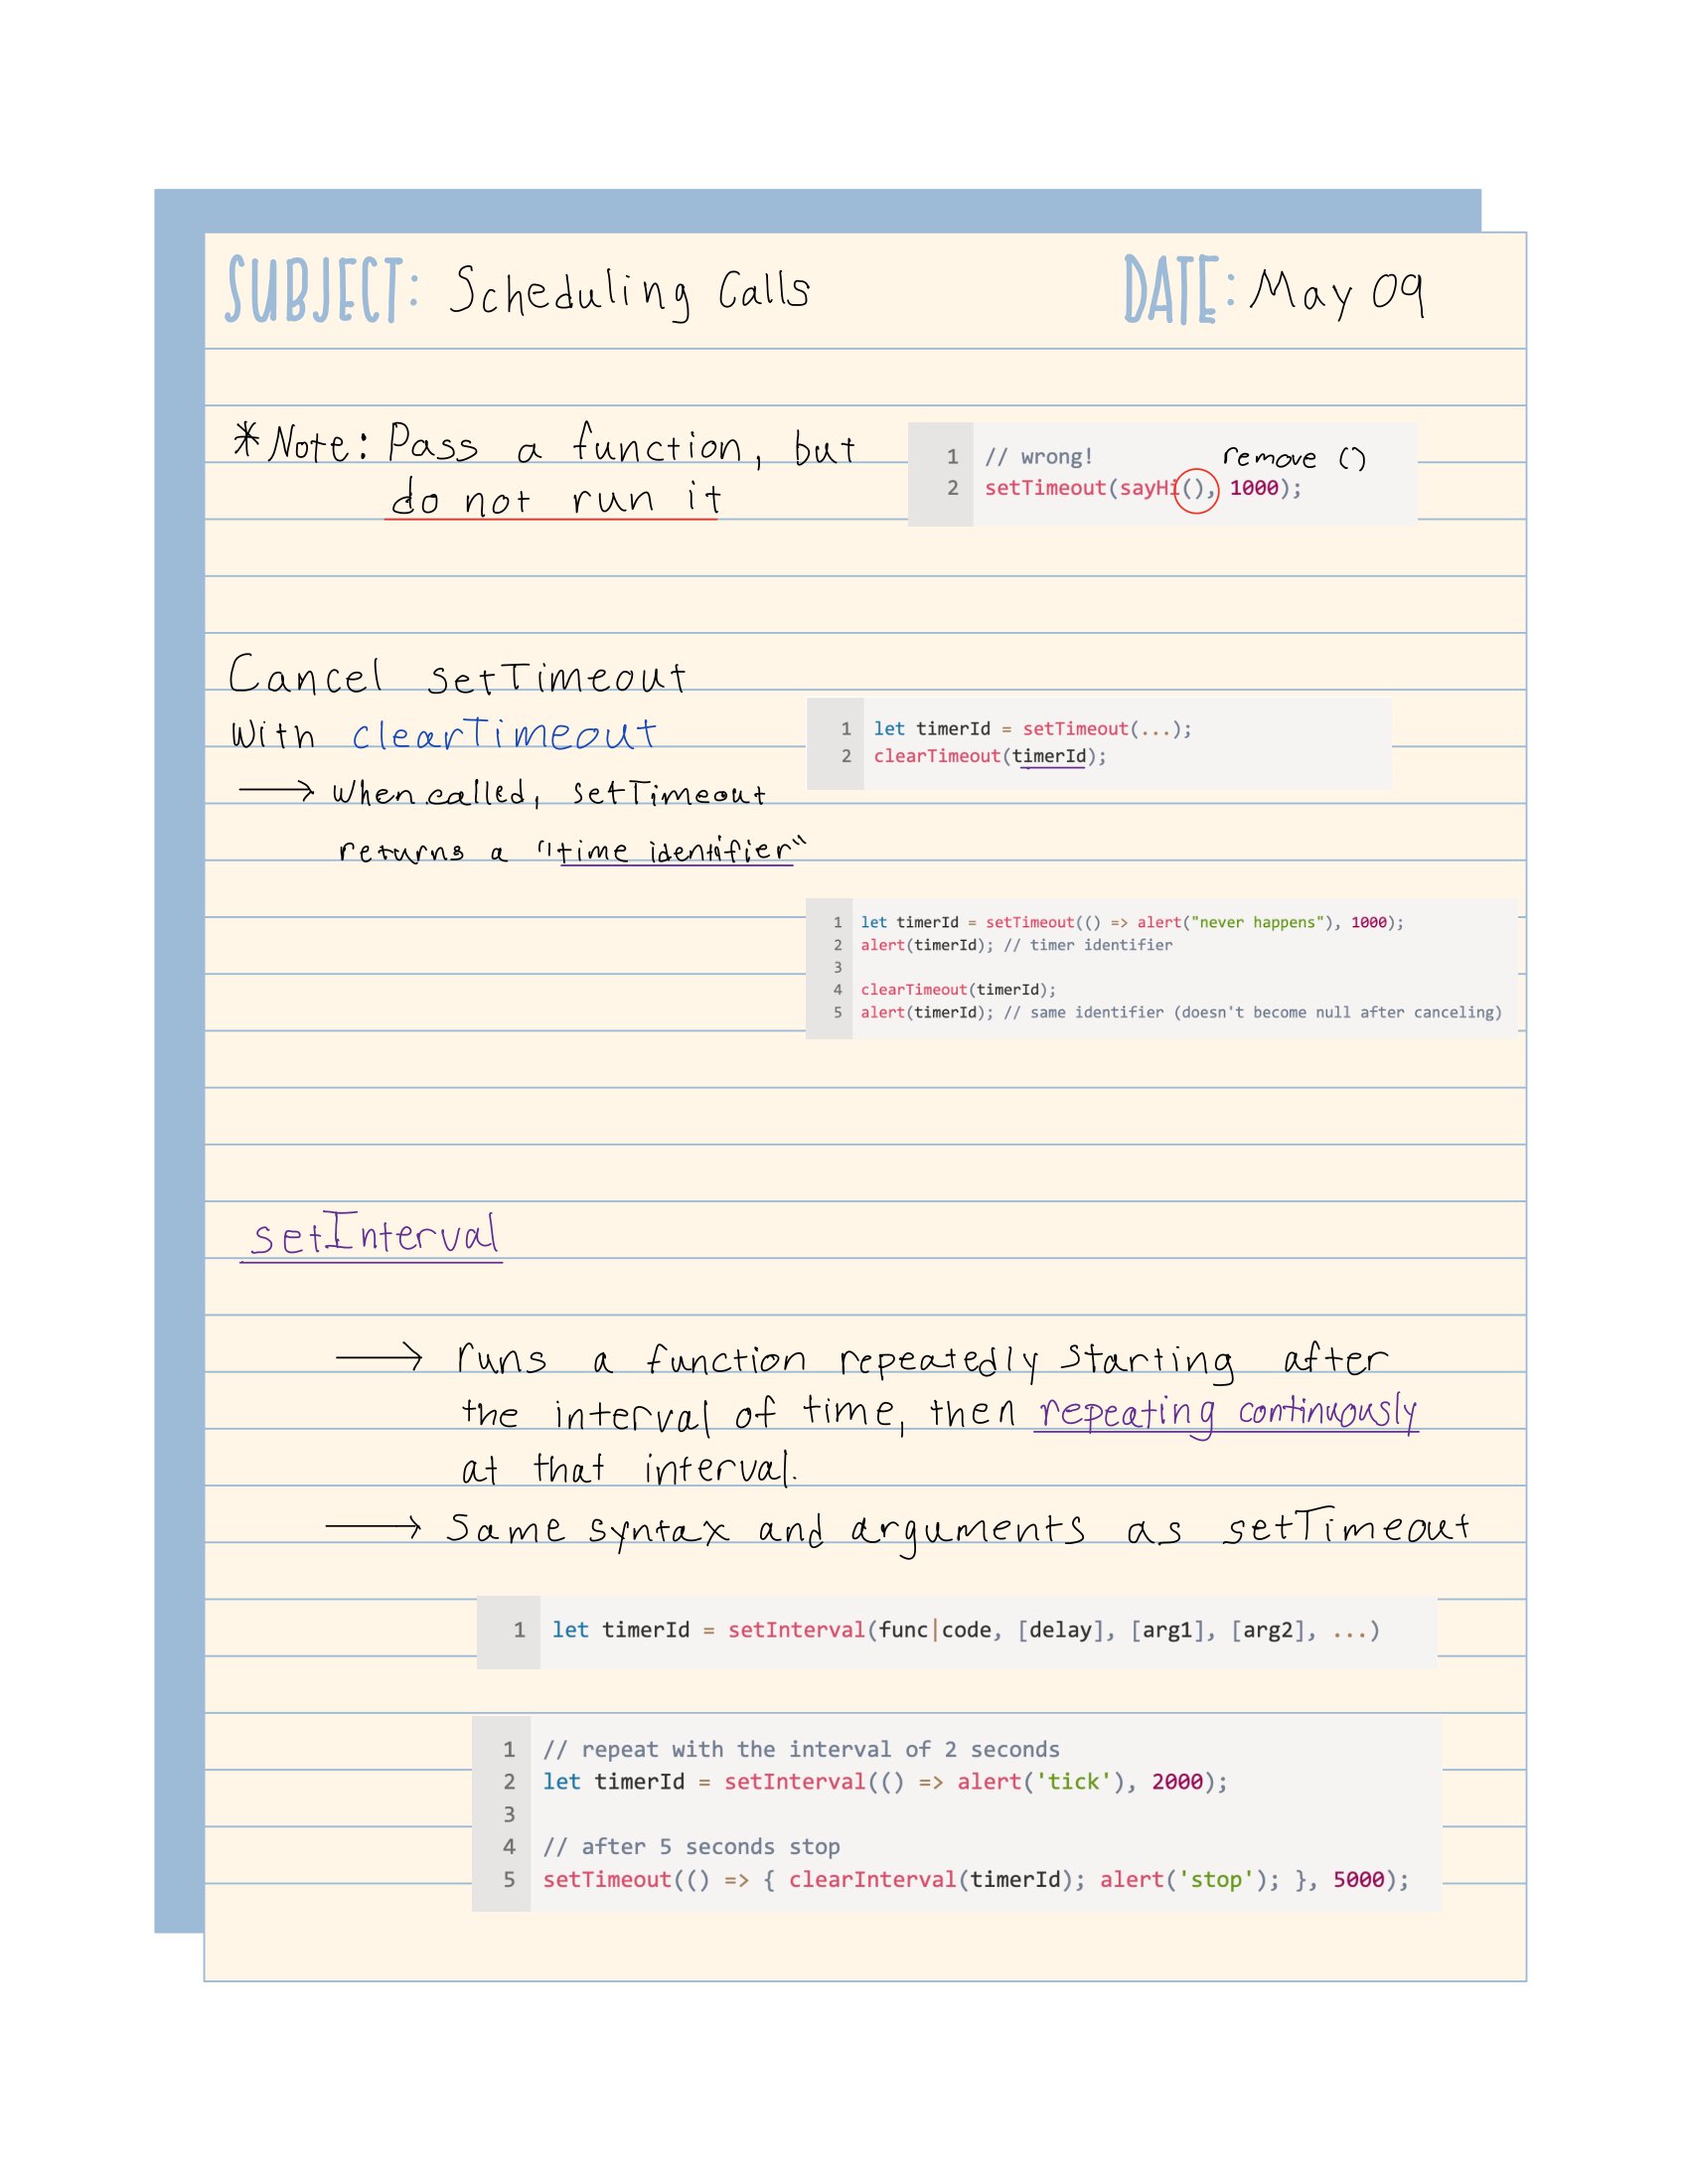 SUBJECT: Scheduling Calls DATE: May 09
*Note: Pass a function, but
do not run it
1 // wrong! remove ()
2 setTimeout(sayHi(), 1000);
Cancel setTimeout
With clearTimeout
→ When called, setTimeout
returns a "time identifier"
1 let timerId = setTimeout(...);
2 clearTimeout(timerId);
1 let timerId = setTimeout(() => alert("never happens"), 1000);
2 alert(timerId); // timer identifier
3
4 clearTimeout(timerId);
5 alert(timerId); // same identifier (doesn't become null after canceling)
setInterval
→ runs a function repeatedly starting after
the interval of time, then repeating continuously
at that interval.
→ Same syntax and arguments as setTimeout
1 let timerId = setInterval(func|code, [delay], [arg1], [arg2], ...)
1 // repeat with the interval of 2 seconds
2 let timerId = setInterval(() => alert('tick'), 2000);
3
4 // after 5 seconds stop
5 setTimeout(() => { clearInterval(timerId); alert('stop'); }, 5000);